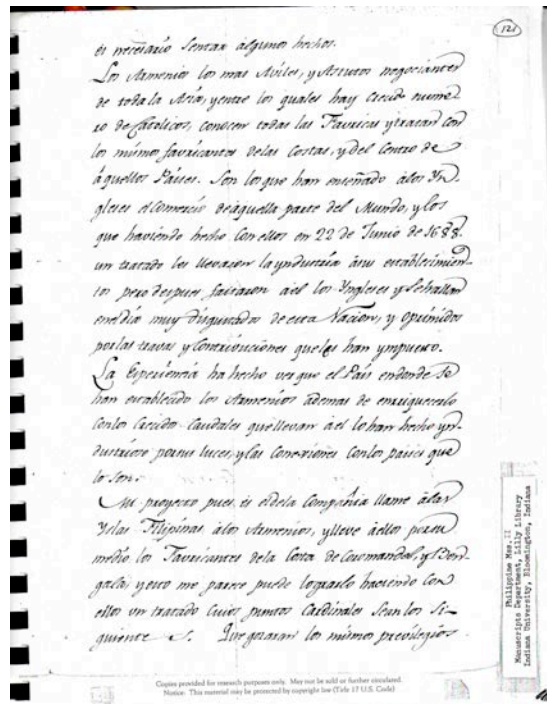 121
es necesario sentar algunos hechos.
Los Armenios los mas Aviles, y Astutos negociantes
de toda la Asia, y entre los quales hay crecido nume-
ro de Catolicos, conocen todas las Favricas y tratan con
los mismos favricantes de las Costas, y del Centro de
aquellos Paises. Son los que han enseñado a los Yn-
gleses el Comercio de aquella parte del Mundo, y los
que haviendo hecho con ellos en 22 de Junio de 1688.
un tratado les llevaron la yndustria a sus establecimien-
tos pero despues faltaron a el los Yngleses y se hallan
en el dia muy disgustados de esta Nacion, y oprimidos
por las travas y Contrivuciones que les han ympuesto.
La Experiencia ha hecho ver que el Pais en donde se
han establecido los Armenios ademas de enriquecerlo
con los Crecidos Caudales que llevan a el lo han hecho yn-
dustrioso por sus luces, y las Conexiones con los paises que
lo son.
Mi proyecto pues es el de la Compañia llame a las
Yslas Filipinas a los Armenios, y lleve a ellos por su
medio, los Favricantes de la Costa de Coromandel, y Ben-
gala; y esto me parece puede lograrlo haciendo con
ellos un tratado cuios puntos Cardinales sean los Si-
guientes. Que gozaran los mismos previlegios
Philippine Mss. II
Manuscripts Department, Lilly Library
Indiana University, Bloomington, Indiana
Copies provided for research purposes only. May not be sold or further circulated.
Notice: This material may be protected by copyright law (Title 17 U.S. Code)